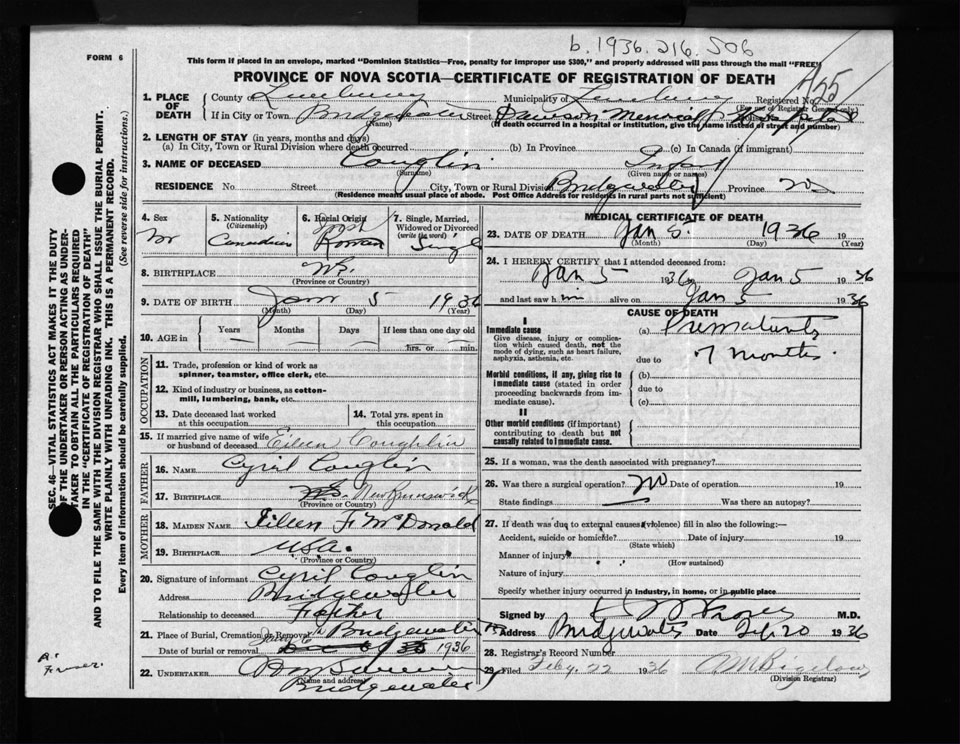 b. 1936. 216. 506
FORM 6
This form if placed in an envelope, marked "Dominion Statistics—Free, penalty for improper use $300," and properly addressed will pass through the mail "FREE"
PROVINCE OF NOVA SCOTIA—CERTIFICATE OF REGISTRATION OF DEATH
1. PLACE OF DEATH
County of Lunenburg Municipality of Lunenburg Registered No.
(For use of Registrar General only)
If in City or Town Bridgewater Street Dawson Memorial Hospital
(Name) (If death occurred in a hospital or institution, give the name instead of street and number)
2. LENGTH OF STAY (in years, months and days)
(a) In City, Town or Rural Division where death occurred (b) In Province (c) In Canada (if immigrant)
3. NAME OF DECEASED Couglin Infant
(Surname) (Given name or names)
RESIDENCE No Street City, Town or Rural Division Bridgewater Province NS
(Residence means usual place of abode. Post Office Address for residents in rural parts not sufficient)
4. Sex
m
5. Nationality
(Citizenship)
Canadian
6. Racial Origin
Irish
Roman
7. Single, Married, Widowed or Divorced
(write the word)
Single
8. BIRTHPLACE NS.
(Province or Country)
9. DATE OF BIRTH Jan 5 1936
(Month) (Day) (Year)
10. AGE in
Years Months Days If less than one day old
hrs. or min.
OCCUPATION
11. Trade, profession or kind of work as spinner, teamster, office clerk, etc.
12. Kind of industry or business, as cotton-mill, lumbering, bank, etc.
13. Date deceased last worked at this occupation
14. Total yrs. spent in this occupation
15. If married give name of wife or husband of deceased Eileen Coughlin
FATHER
16. NAME Cyril Couglin
17. BIRTHPLACE NS. New Brunswick
(Province or Country)
MOTHER
18. MAIDEN NAME Eileen F McDonald
19. BIRTHPLACE USA.
(Province or Country)
20. Signature of informant Cyril Couglin
Address Bridgewater
Relationship to deceased Father
21. Place of Burial, Cremation or Removal Bridgewater NS
Date of burial or removal Jan 6 1936
22. UNDERTAKER
(Name and address)
Bridgewater
MEDICAL CERTIFICATE OF DEATH
23. DATE OF DEATH Jan 5. 1936 19
(Month) (Day) (Year)
24. I HEREBY CERTIFY that I attended deceased from:
Jan 5 1936 Jan 5 1936
and last saw h im alive on Jan 5 1936
CAUSE OF DEATH
I
Immediate cause
Give disease, injury or complication which caused death, not the mode of dying, such as heart failure, asphyxia, asthenia, etc.
(a) Prematurity
due to 7 months.
Morbid conditions, if any, giving rise to immediate cause (stated in order proceeding backwards from immediate cause).
(b)
due to
(c)
II
Other morbid conditions (if important) contributing to death but not causally related to immediate cause.
25. If a woman, was the death associated with pregnancy?
26. Was there a surgical operation? no Date of operation 19
State findings Was there an autopsy?
27. If death was due to external causes (violence) fill in also the following:—
Accident, suicide or homicide? Date of injury 19
(State which)
Manner of injury
(How sustained)
Nature of injury
Specify whether injury occurred in industry, in home, or in public place
Signed by M.D.
Address Bridgewater Date Feb 20 1936
28. Registrar's Record Number
29. Filed Feby. 22 1936 A M Bigelow
(Division Registrar)
SEC. 46—VITAL STATISTICS ACT MAKES IT THE DUTY
OF THE UNDERTAKER OR PERSON ACTING AS UNDER-
TAKER TO OBTAIN ALL THE PARTICULARS REQUIRED
IN THE "CERTIFICATE OF REGISTRATION OF DEATH"
AND TO FILE THE SAME WITH THE DIVISION REGISTRAR WHO SHALL ISSUE THE BURIAL PERMIT.
WRITE PLAINLY WITH UNFADING INK. THIS IS A PERMANENT RECORD.
Every item of information should be carefully supplied. (See reverse side for instructions.)